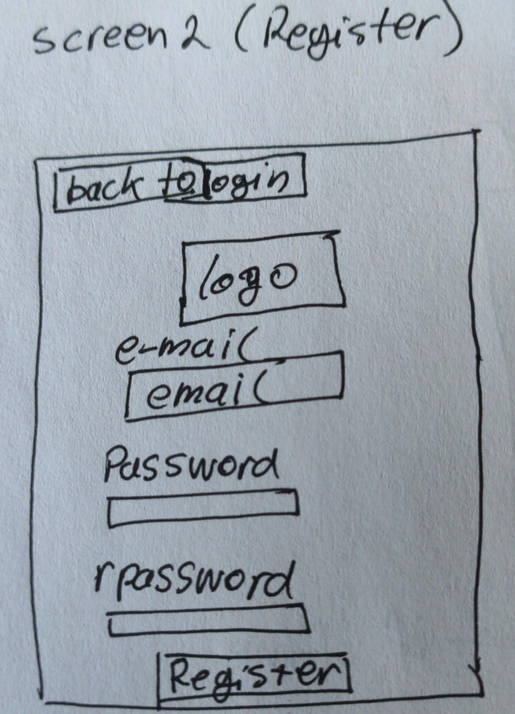 screen 2 (Register)
back to login
logo
e-mail
email
Password
rpassword
Register